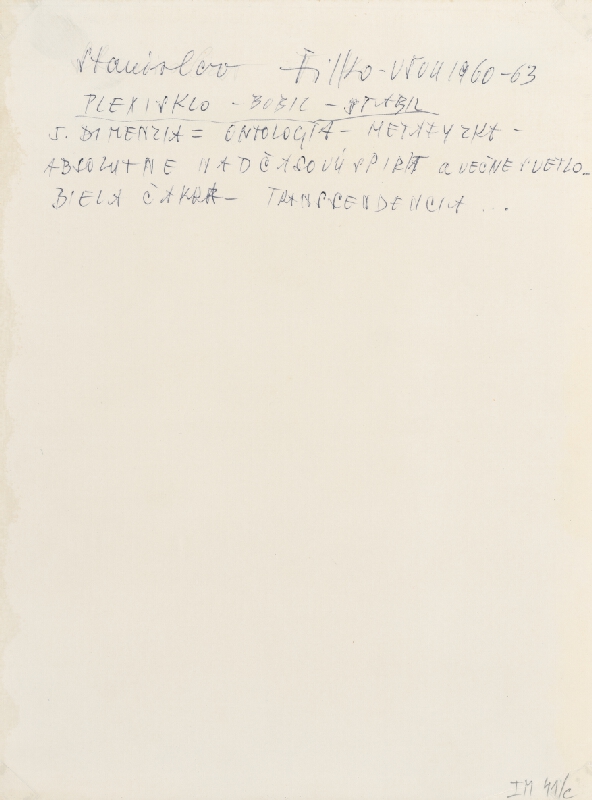 Stanislav Filko - VŠVU 1960-63
PLEXISKLO - BOBIL - STABIL
5. DIMENZIA = ONTOLOGIA - METAFYZKA -
ABSOLUTNE NADČASOVÚ SPIRIT a VEČNE SVETLO -
BIELA ČAKRA - TRANSCENDENCIA ...
IM 41/c